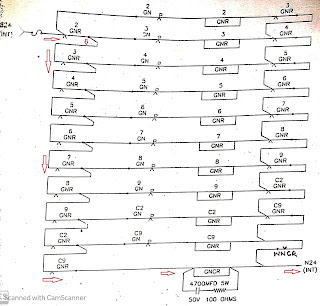 2 3
GN GNR
2
GNR
B24
(INT)
2 3
GNR GN 3 4
GNR GNR
3 4
GNR GN 4 5
GNR GNR
4 5
GNR GN 5 6
GNR GNR
5 6
GNR GN 6 7
GNR GNR
6 7
GNR GN 7 8
GNR GNR
7 8
GNR GN 8 9
GNR GNR
8 9
GNR GN 9 C2
GNR GNR
9 C2
GNR GN C2 C9
GNR GNR
C2 C9
GNR GN C9
GNR WNCR
C9
GNR N24
(INT)
GNCR
4700MFD 5W
50V 100 OHMS
Scanned with CamScanner